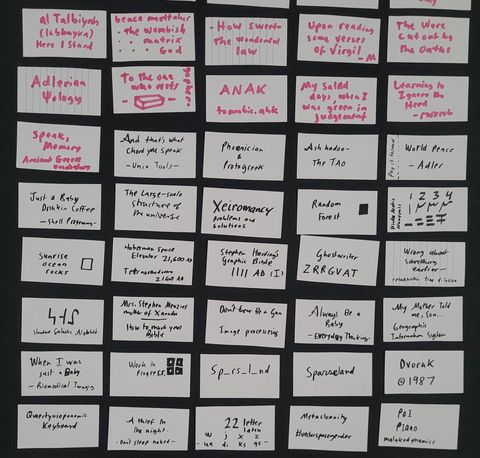 al Talbiyah
(labbayka)
Here I Stand
peace
- the wombish
matrix
God
- How sweet
the wonderful
law
Upon reading
some verses
of Virgil
- M
The Wore
Cut out by
The Oaths
Adlerian
Yology
To the one
who rests
ANAK
My Salad
days, when I
was green in
judgement
Learning to
Ignore the
Herd
Speak,
Memory
Ancient Greek
And that's what
Chord you speak
- Unix Tools -
Phoenician
&
Protogreek
Ashhadoo-
The TAO
World Peace
- Adler
Just a Baby
Drinkin Coffee
- Shell Program-
The Large-scale
structure of
the universe
Xeiromancy
problems and
solutions
Random
Forest
1 2 3 4
Sunrise
ocean
rocks
Hoberman Space
Elevator 21,600 AD
Tetraspace 2160 AD
Stephen Harding's
Graphic Bible
1111 AD (I)
Ghostwriter
ZRRGVAT
Wrong about
something
earlier -
Standard Galactic Alphabet
Mrs. Stephen Menzies
mother of Xanadu
How to mark your
Bible
Don't be a Gun
Image processing
Always Be a
Baby
- Everyday Thinking
My Mother Told
me, Son...
Geographic
Information System
When I was
just a Baby
- Biomedical Imaging
Work in
Progress.
Sp_rs_l_nd
Sparseland
Dvorak
@ 1987
Qwertyuiopnomic
Keyboard
A thief In
the night.
- Don't sleep naked -
22 letter
Latin
w j x z
- uu di ks gs -
Metaclonality
#hunterspacegender
Poi
Piano
malakodynamics